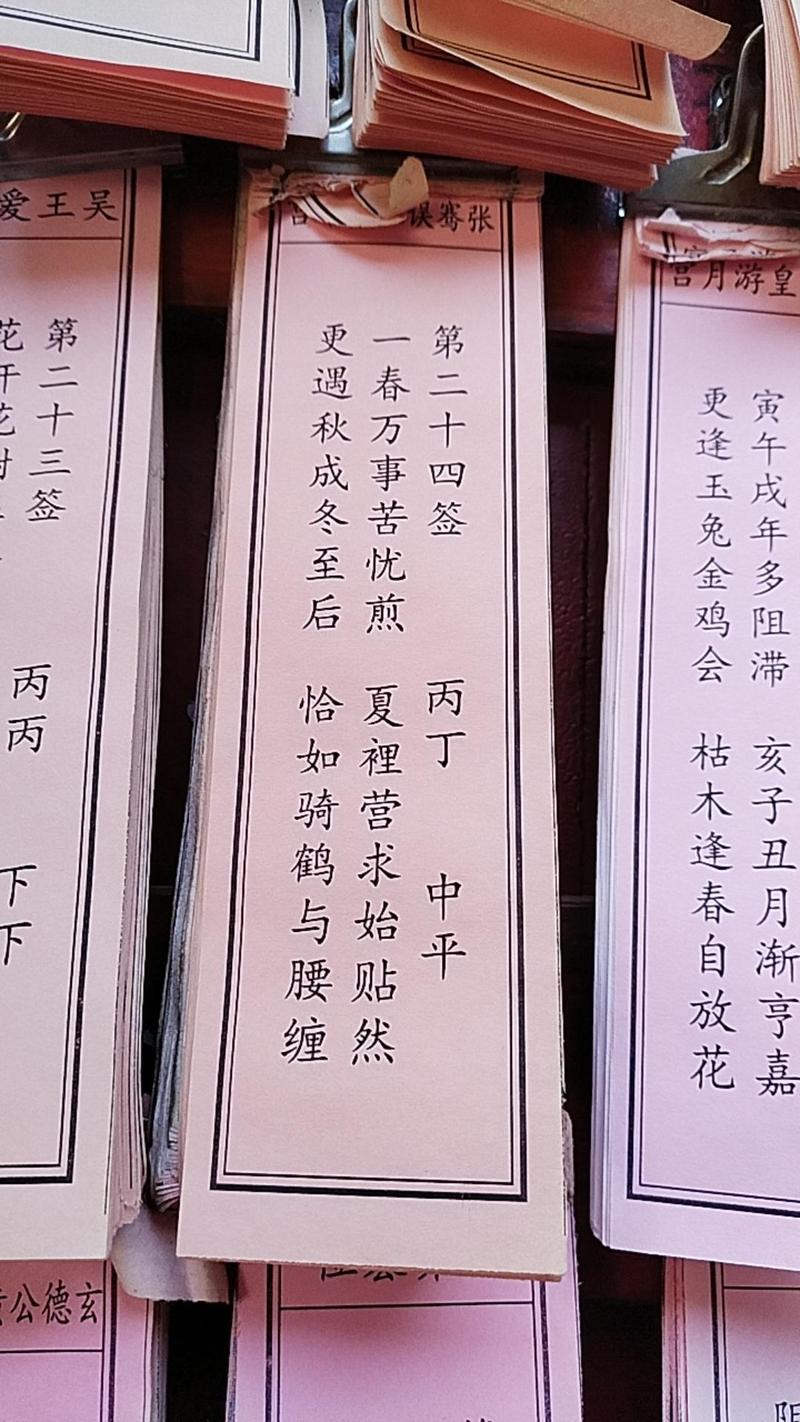 张骞误
第二十四签 丙丁 中平
一春万事苦忧煎 夏裡营求始贴然
更遇秋成冬至后 恰如骑鹤与腰缠
吴王爱
第二十三签 丙丙 下下
皇游月宫
寅午戌年多阻滞 亥子丑月渐亨嘉
更逢玉兔金鸡会 枯木逢春自放花
玄德公